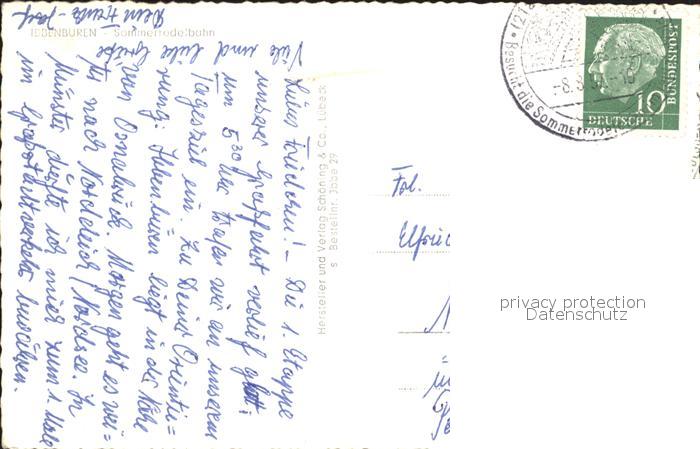 IBBENBÜREN Sommerrodelbahn
Liebes Friedchen! - Die 1. Etappe
unserer Großfahrt verlief glatt:
um 5³⁰ Uhr trafen wir an unserem
Tagesziel ein. Zu Deiner Orientie-
rung: Ibbenbüren liegt in der Nähe
von Osnabrück. Morgen geht es wei-
ter nach Norddeich/Nordsee. In
Münster durfte ich mich zum 1. Male
im Großstadtverkehr
Viele und liebe Grüße
Dein
Hersteller und Verlag Schöning & Co., Lübeck
S Bestellnr. Jbbe 29
Frl.
Elfried
(21a
Besucht die Sommerrodel
-8.8.5
10
DEUTSCHE
BUNDESPOST
privacy protection
Datenschutz